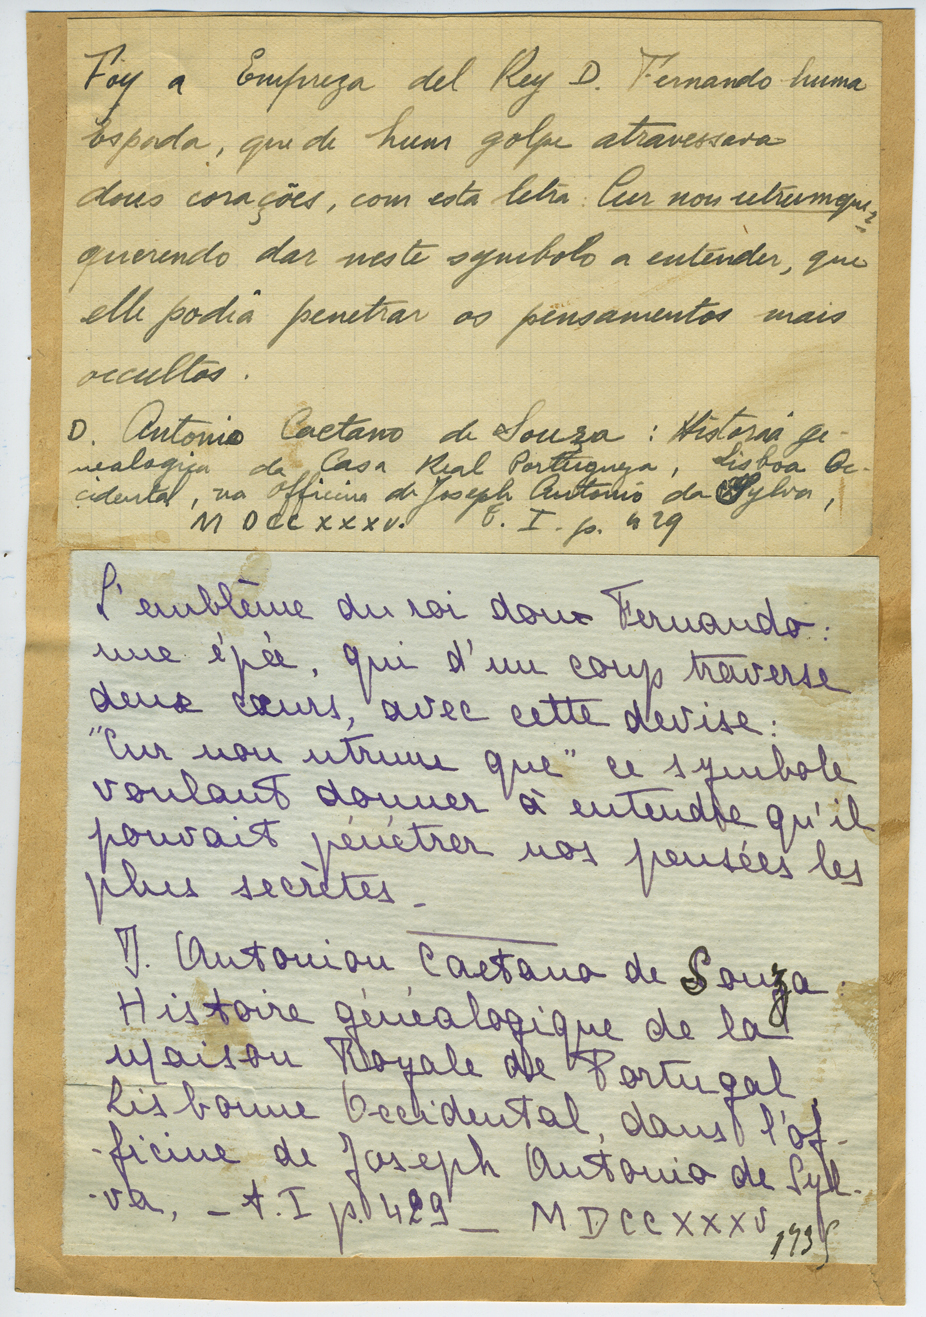 Foy a Empreza del Rey D. Fernando huma
Espada, que de hum golpe atravessava
dous corações, com esta letra: Cur non utrumque?
querendo dar neste symbolo a entender, que
elle podia penetrar os pensamentos mais
occultos.
D. Antonio Caetano de Souza: Historia ge-
nealogica da Casa Real Portugueza, Lisboa Oc-
cidental, na Officina de Joseph Antonio da Sylva,
MDCCXXXV. T. I. p. 429
L'emblème du roi dom Fernando:
une épée, qui d'un coup traverse
deux cœurs, avec cette devise:
"Cur non utrum que" ce symbole
voulant donner à entendre qu'il
pouvait pénétrer nos pensées les
plus secrètes.
D. Antonion Caetano de Souza.
Histoire généalogique de la
Maison Royale de Portugal
Lisbonne Occidental, dans l'of-
-ficine de Joseph Antonio de Syl-
-va, - t. I p. 429 - MDCCXXXV
1735